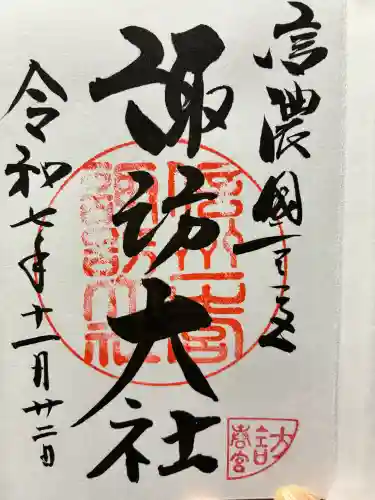 信濃國一之宮
諏訪大社
令和七年十一月廿二日
信州一宮
諏訪大社
春宮